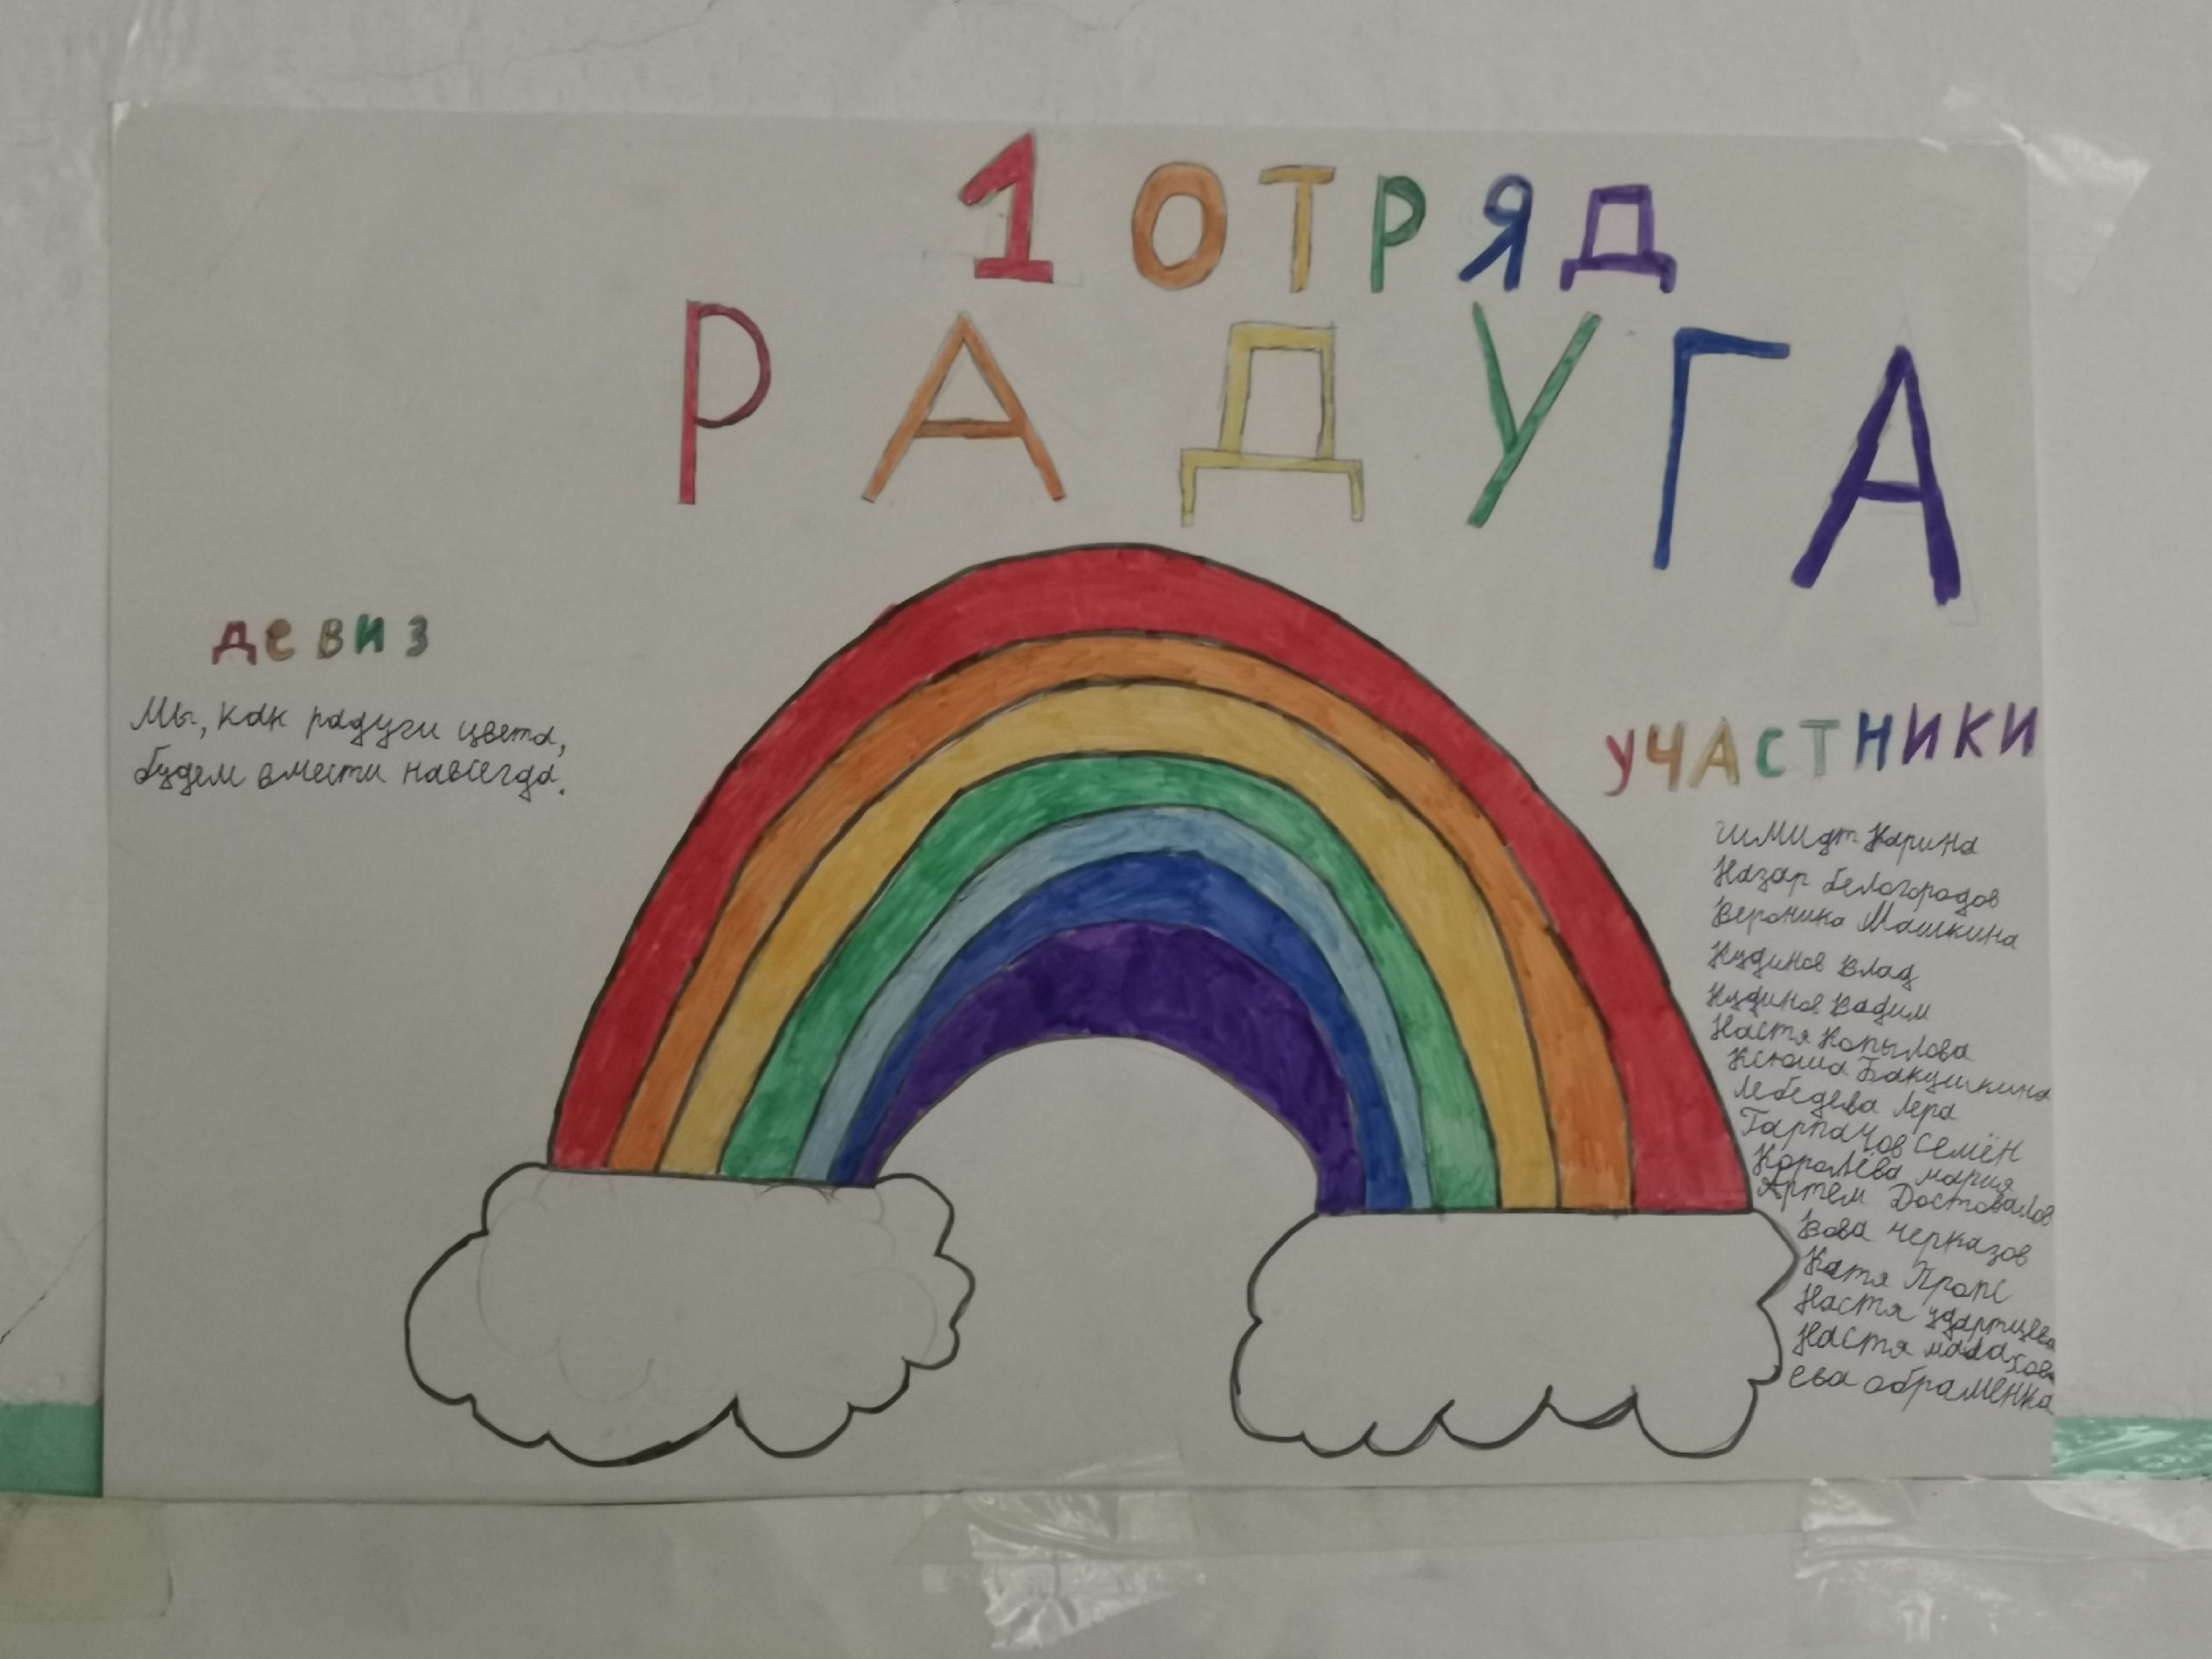 1 ОТРЯД
РАДУГА
ДЕВИЗ
Мы, как радуги цвета,
будем вмести навсегда.
УЧАСТНИКИ
Шмидт Карина
Назар белогородов
Вероника Машкина
Кудинов Влад
Кудинов Вадим
Настя Копылова
Ксюша Бакушкина
Лебедева Лера
Семён
Королёва мария
Артем Достовалов
Вова черказов
Катя Пропс
Настя ударцева
Настя
ева абраменка